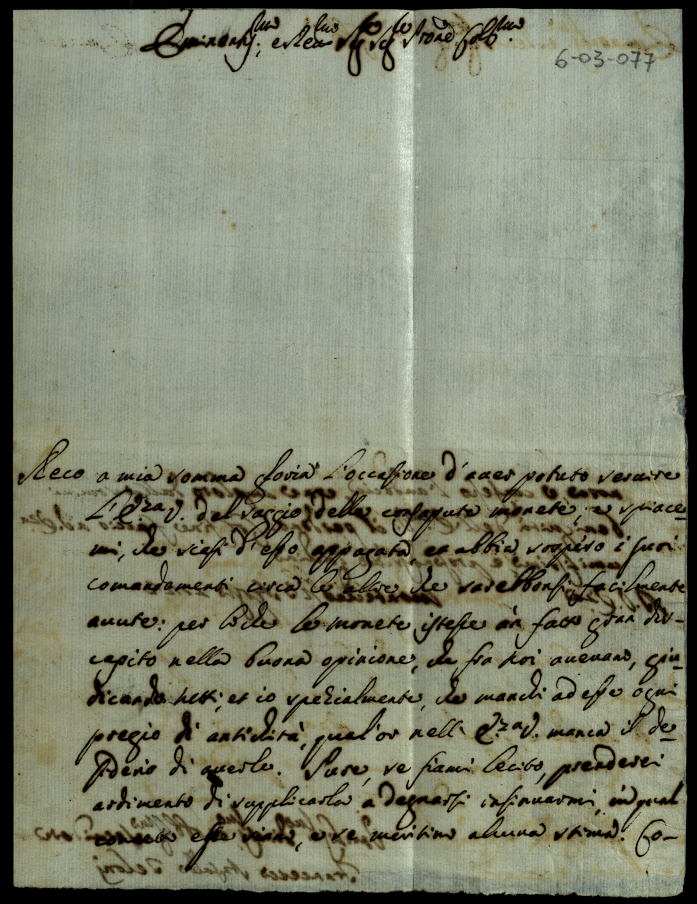 Eminent.mo, e Rev.mo Sig.r Sig.r Prone Col.mo
6-03-077
Reco a mia somma gloria l'occasione d'aver potuto servire
l'E.za V. del saggio delle consapute monete; e spiace-
mi, che siasi d'esso appagata, et abbia sospeso i suoi
comandamenti circa le altre che sarebbonsi facilmente
avute: per lo che le monete istesse àn fatto gran dis-
capito nella buona opinione, che fra noi avevano, giu-
dicando tutti, et io spezialmente, che manchi ad esse ogni
pregio di antichità, qual'or nell' E.za V. manca il de-
siderio di averle. Pure, se siami lecito, prenderei
ardimento di supplicarla a degnarsi insinuarmi, in qual
concetto esse siano, e se meritino alcuna stima. Co-